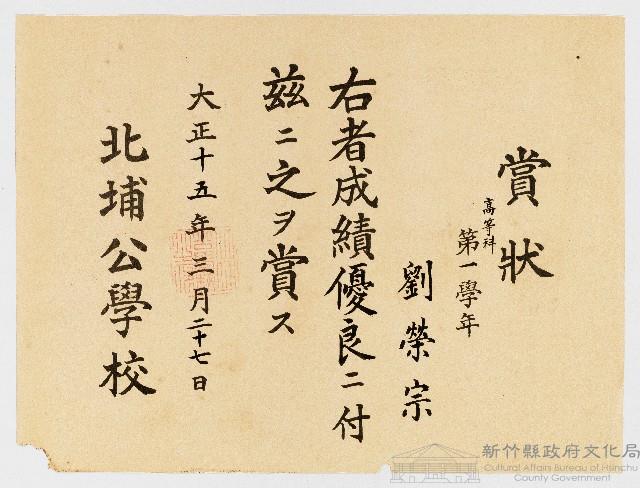 賞狀
高等科
第一學年
劉榮宗
右者成績優良ニ付
茲ニ之ヲ賞ス
大正十五年三月二十七日
北埔公學校
新竹縣政府文化局
Cultural Affairs Bureau of Hsinchu
County Government